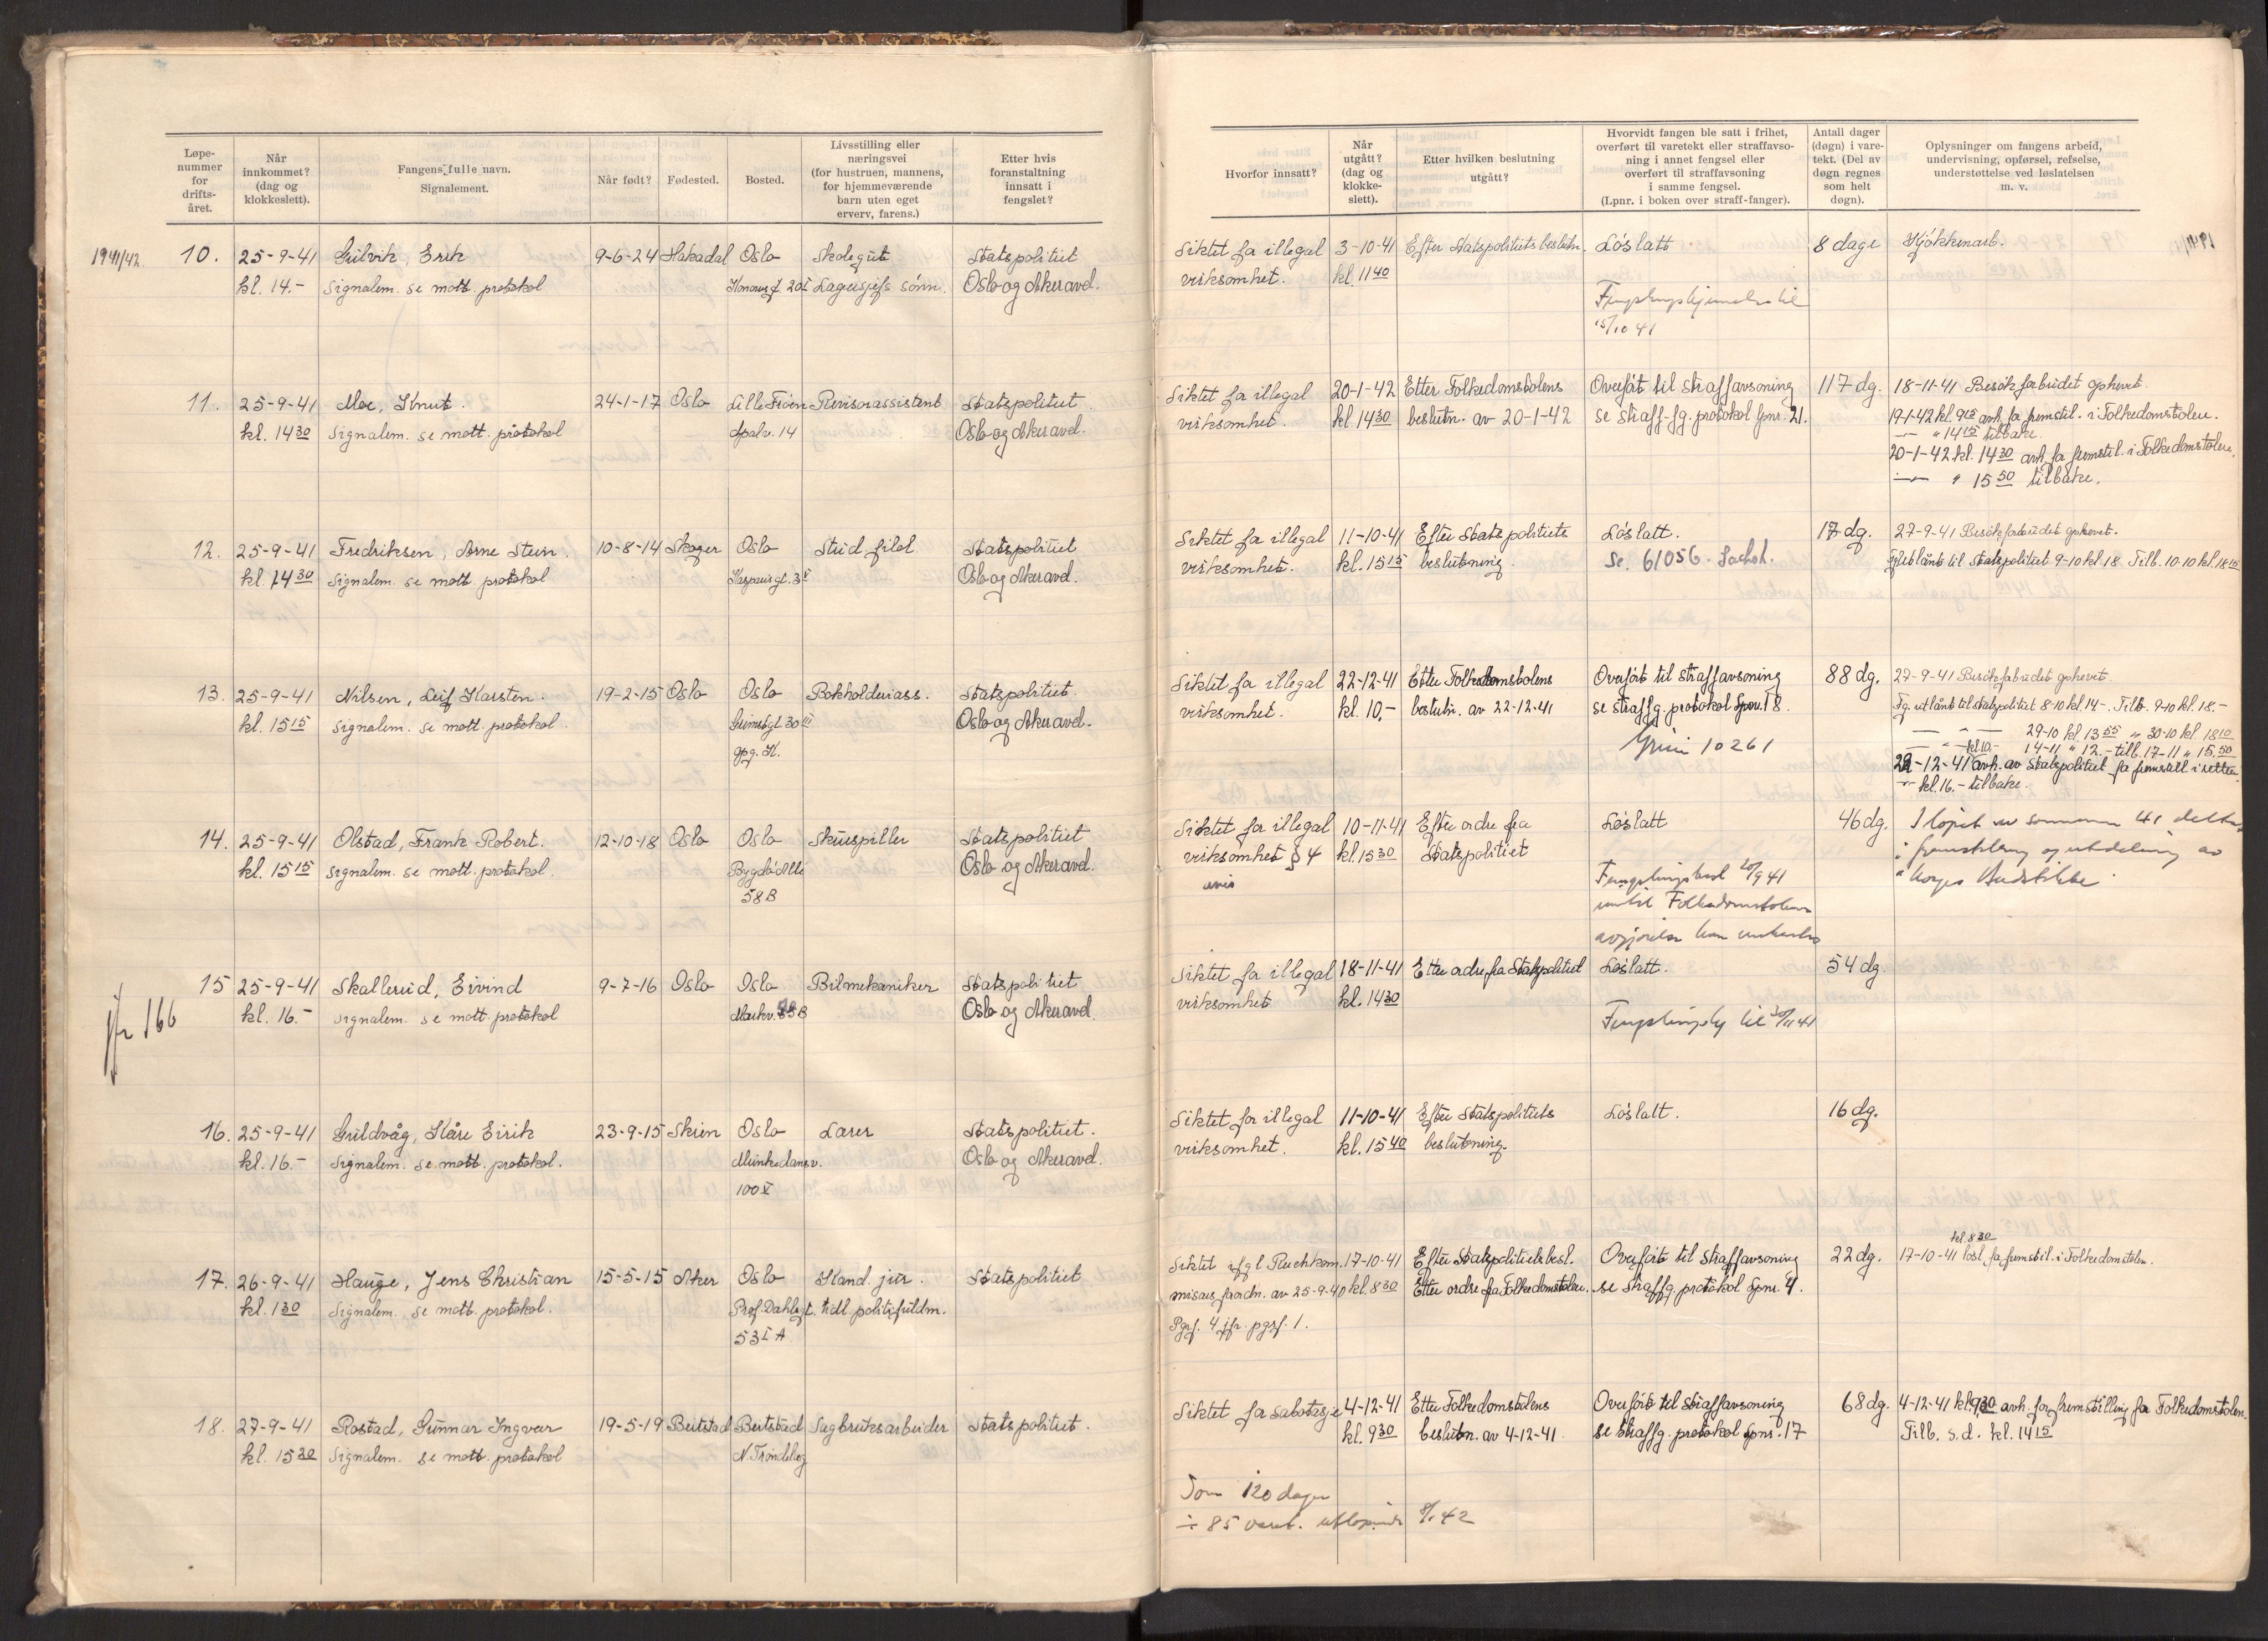 Løpe-
nummer
for
drifts-
året.
Når
innkommet?
(dag og
klokkeslett).
Fangens fulle navn.
Signalement.
Når født?
Fødested.
Bosted.
Livsstilling eller
næringsvei
(for hustruen, mannens,
for hjemmeværende
barn uten eget
erverv, farens.)
Etter hvis
foranstaltning
innsatt i
fengslet?
Hvorfor innsatt?
Når
utgått?
(dag og
klokke-
slett).
Etter hvilken beslutning
utgått?
Hvorvidt fangen ble satt i frihet,
overført til varetekt eller straffavso-
ning i annet fengsel eller
overført til straffavsoning
i samme fengsel.
(Lpnr. i boken over straff-fanger).
Antall dager
(døgn) i vare-
tekt. (Del av
døgn regnes
som helt
døgn).
Oplysninger om fangens arbeid,
undervisning, opførsel, refselse,
understøttelse ved løslatelsen
m. v.
1941/42 10. 25-9-41 Gulvik, Erik 9-6-24 Hakadal Oslo Skolegut Statspolitiet Siktet for illegal 3-10-41 Efter Statspolitiets beslutn. Løslatt 8 dage Kjøkkenarb.
kl. 14.- Signalem. se mott. protokol 20 I Lagersjefs sønn. Oslo og Aker avd. virksomhet. kl. 11 40
15/10 41
11. 25-9-41 Moe, Knut. 24-1-17 Oslo Lille Frøen Revisorassistent Statspolitiet Siktet for illegal 20-1-42 Etter Folkedomstolens Overført til straffavsoning 117 dg. 18-11-41 Besøkforbudet ophevet.
kl. 14 30 Signalem. se mott. protokol Apalv. 14 Oslo og Aker avd. virksomhet. kl 14 30 beslutn. av 20-1-42 se straff-fg. protokol lpnr. 21. 19-1-42 kl. 9 15 avh. for fremstil. i Folkedomstolen.
— " 14 15 tilbake.
20-1-42 kl. 14 30 avh. for fremstil. i Folkedomstolen.
— " 15 50 tilbake.
12. 25-9-41 Fredriksen, Arne Stein. 10-8-14 Skoger Oslo Stud. filol. Statspolitiet Siktet for illegal 11-10-41 Efter Statspolitiets Løslatt. 17 dg. 27-9-41 Besøkforbudet ophevet.
kl. 14 30 Signalem. se mott. protokol Kasparisgt. 3 Oslo og Aker avd. virksomhet. kl. 15 15 beslutning. Se. 61056. Sachsh. Utlånt til Statspolitiet 9-10 kl 18 Tilb. 10-10 kl. 18 15
13. 25-9-41 Nilsen, Leif Karsten. 19-2-15 Oslo Oslo Bokholderiass. Statspolitiet. Siktet for illegal 22-12-41 Etter Folkedomstolens Overført til straffavsoning 88 dg. 27-9-41 Besøkforbudet ophevet
kl. 15 15 Signalem. se mott. protokol. Grimsgt. 30 III Oslo og Aker avd. virksomhet. kl. 10,- beslutn. av 22-12-41 se straffg. protokol lpnr. 18. Fg. utlånt til statspolitiet 8-10 kl. 14-. Tilb. 9-10 kl. 18.-
opg. K. Grini 10261 — " — 29-10 kl. 13 55 " 30-10 kl 18 10
— " — kl 10.- 14-11 " 12.- till. 17-11 " 15.50
22-12-41 avh. av Statspolitiet for fremstill. i retten
— kl. 16.- tilbake.
14. 25-9-41 Olstad, Frank Robert. 12-10-18 Oslo Oslo Skuespiller Statspolitiet Siktet for illegal 10-11-41 Efter ordre fra Løslatt 46 dg. I løpet av sommeren 41 deltatt
kl. 15 15 Signalem. se mott. protokol. Bygdø Allé Oslo og Aker avd. virksomhet § 4 kl. 15 30 Statspolitiet i fremstilling og utdeling av
58 B avis Fengslingsbesl. 20/9 41 " Norges Budstikke
inntil Folkedomstolens
avgjørelse kan
15 25-9-41 Skallerud, Eivind 9-7-16 Oslo Oslo Bilmekaniker Statspolitiet Siktet for illegal 18-11-41 Etter ordre fra Statspolitiet Løslatt. 54 dg.
jfr 166 kl. 16.- Signalem. se mott. protokol Oslo og Aker avd. virksomhet kl. 14 30
16. 25-9-41 Guldvåg, Kåre Eirik 23-9-15 Skien Oslo Lærer Statspolitiet. Siktet for illegal 11-10-41 Efter Statspolitiets Løslatt. 16 dg.
kl. 16.- Signalem. se mott. protokol. Munkedamsv. Oslo og Aker avd. virksomhet. kl. 15 40 beslutning.
100 V
kl. 8 30
17. 26-9-41 Hauge, Jens Christian 15-5-15 Aker Oslo Kand. jur. Statspolitiet Siktet ifgl Reichkom. 17-10-41 Efter Statspolitiets besl. Overført til straffavsoning 22 dg. 17-10-41 for fremstil. i Folkedomstolen.
kl. 1 30 Signalem. se mott. protokol. Prof. Dahlsgt. tidl. politifuldm. misars forordn. av 25-9-40 kl. 8 30 Etter ordre fra Folkedomstolen. se straffg. protokol lpnr. 4.
53 I A. Pgrf. 4 jfr. pgrf. 1.
18. 27-9-41 Rostad, Gunnar Ingvar 19-5-19 Beitstad Beitstad Sagbruksarbeider Statspolitiet. Siktet for sabotasje 4-12-41 Etter Folkedomstolens Overført til straffavsoning 68 dg. 4-12-41 kl. 9 30 avh. for fremstilling for Folkedomstolen.
kl. 15 30 Signalem. se mott. protokol N. Trøndelag kl. 9 30 beslutn. av 4-12-41. se straffg. protokol lpnr. 17 Tilb. s.d. kl. 14 15
Dom 120 dager
÷ 85 varet. 8/1 42